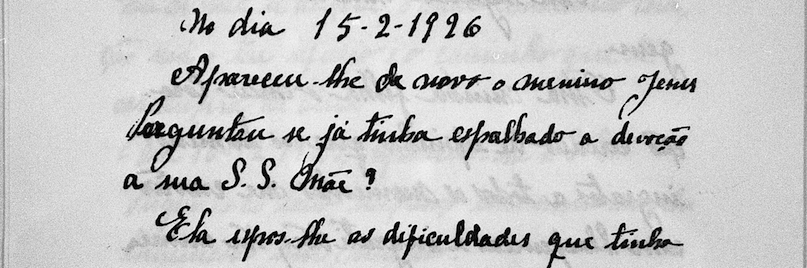 No dia 15-2-1926
Apareceu-lhe de novo o menino Jesus
Perguntau se já tinha espalhado a devoção
a sua S. S. Mãe?
Ela espos-lhe as dificuldades que tinha